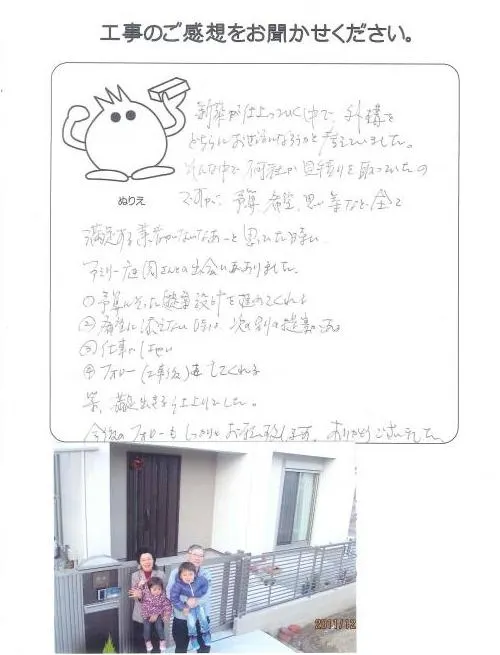 工事のご感想をお聞かせください。
新築が仕上っていく中で、外構を
どちらにお世話になろうかと考えていました。
そんな中で何社か見積りを取っていたの
ですが、予算、希望、思い等など、全て
満足する業者がないなあーと思っていた時に
ファミリー庭園さんとの出会いがありました。
ぬりえ
①予算にそった提案設計を進めてくれる
②希望に添えない時は、次の別の提案がある
③仕事がはやい
④フォロー(工事後)をしてくれる
等、満足出来る仕上りでした。
今後のフォローもしっかりとお願い致します。ありがとうございました
2011/12